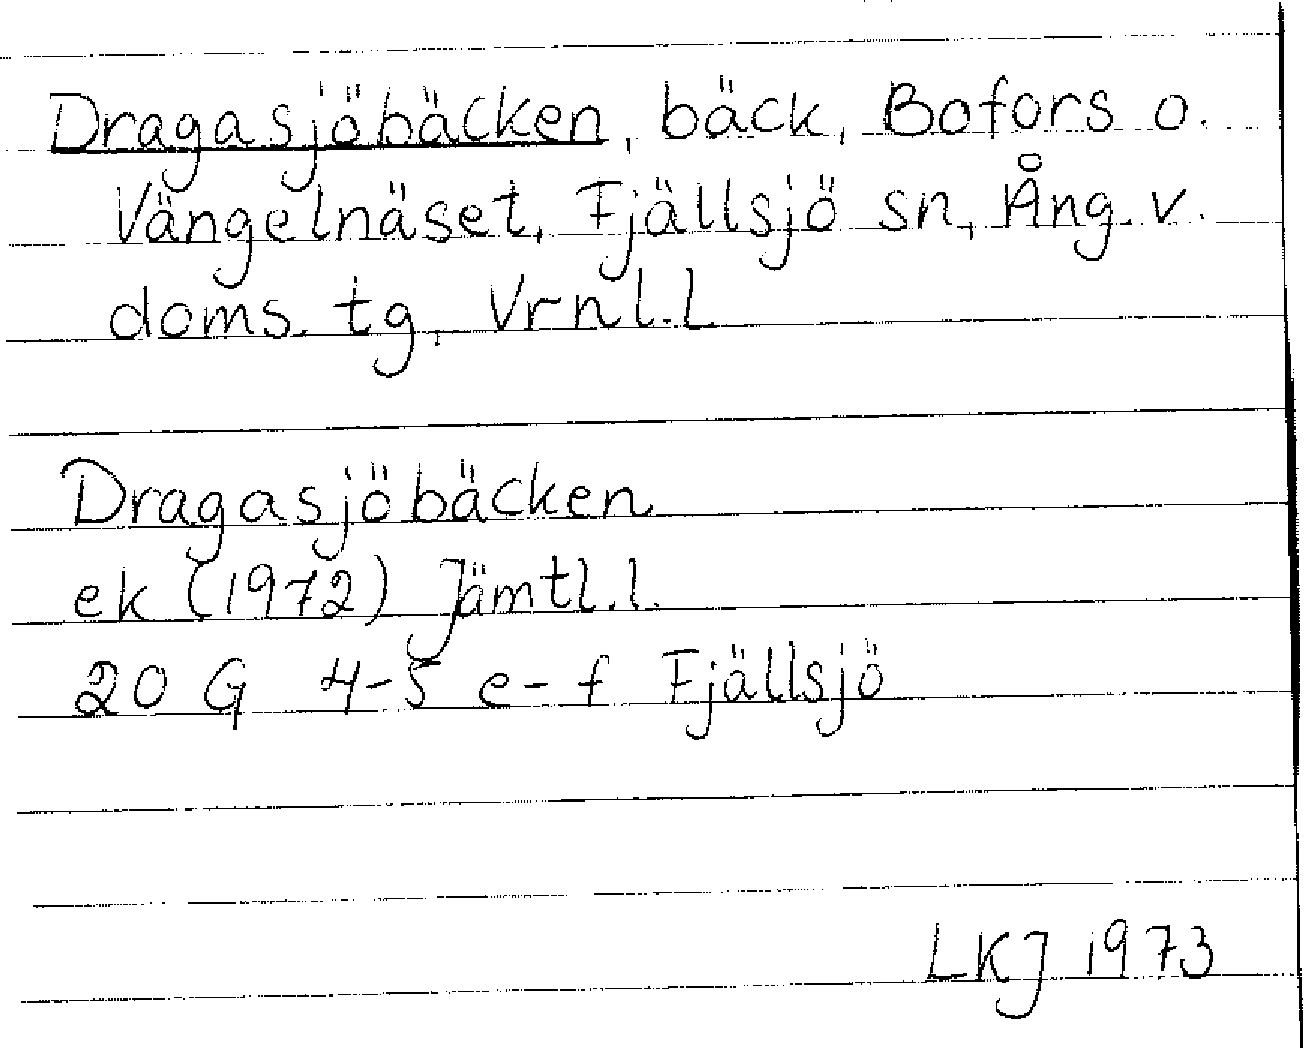 Dragasjöbäcken, bäck, Bofors o.
Vängelnäset, Fjällsjö sn, Ång. v.
doms. tg, Vrnl. L
Dragasjöbäcken
ek (1972) Jämtl. l.
20 G 4-5 e-f Fjällsjö
LKJ 1973